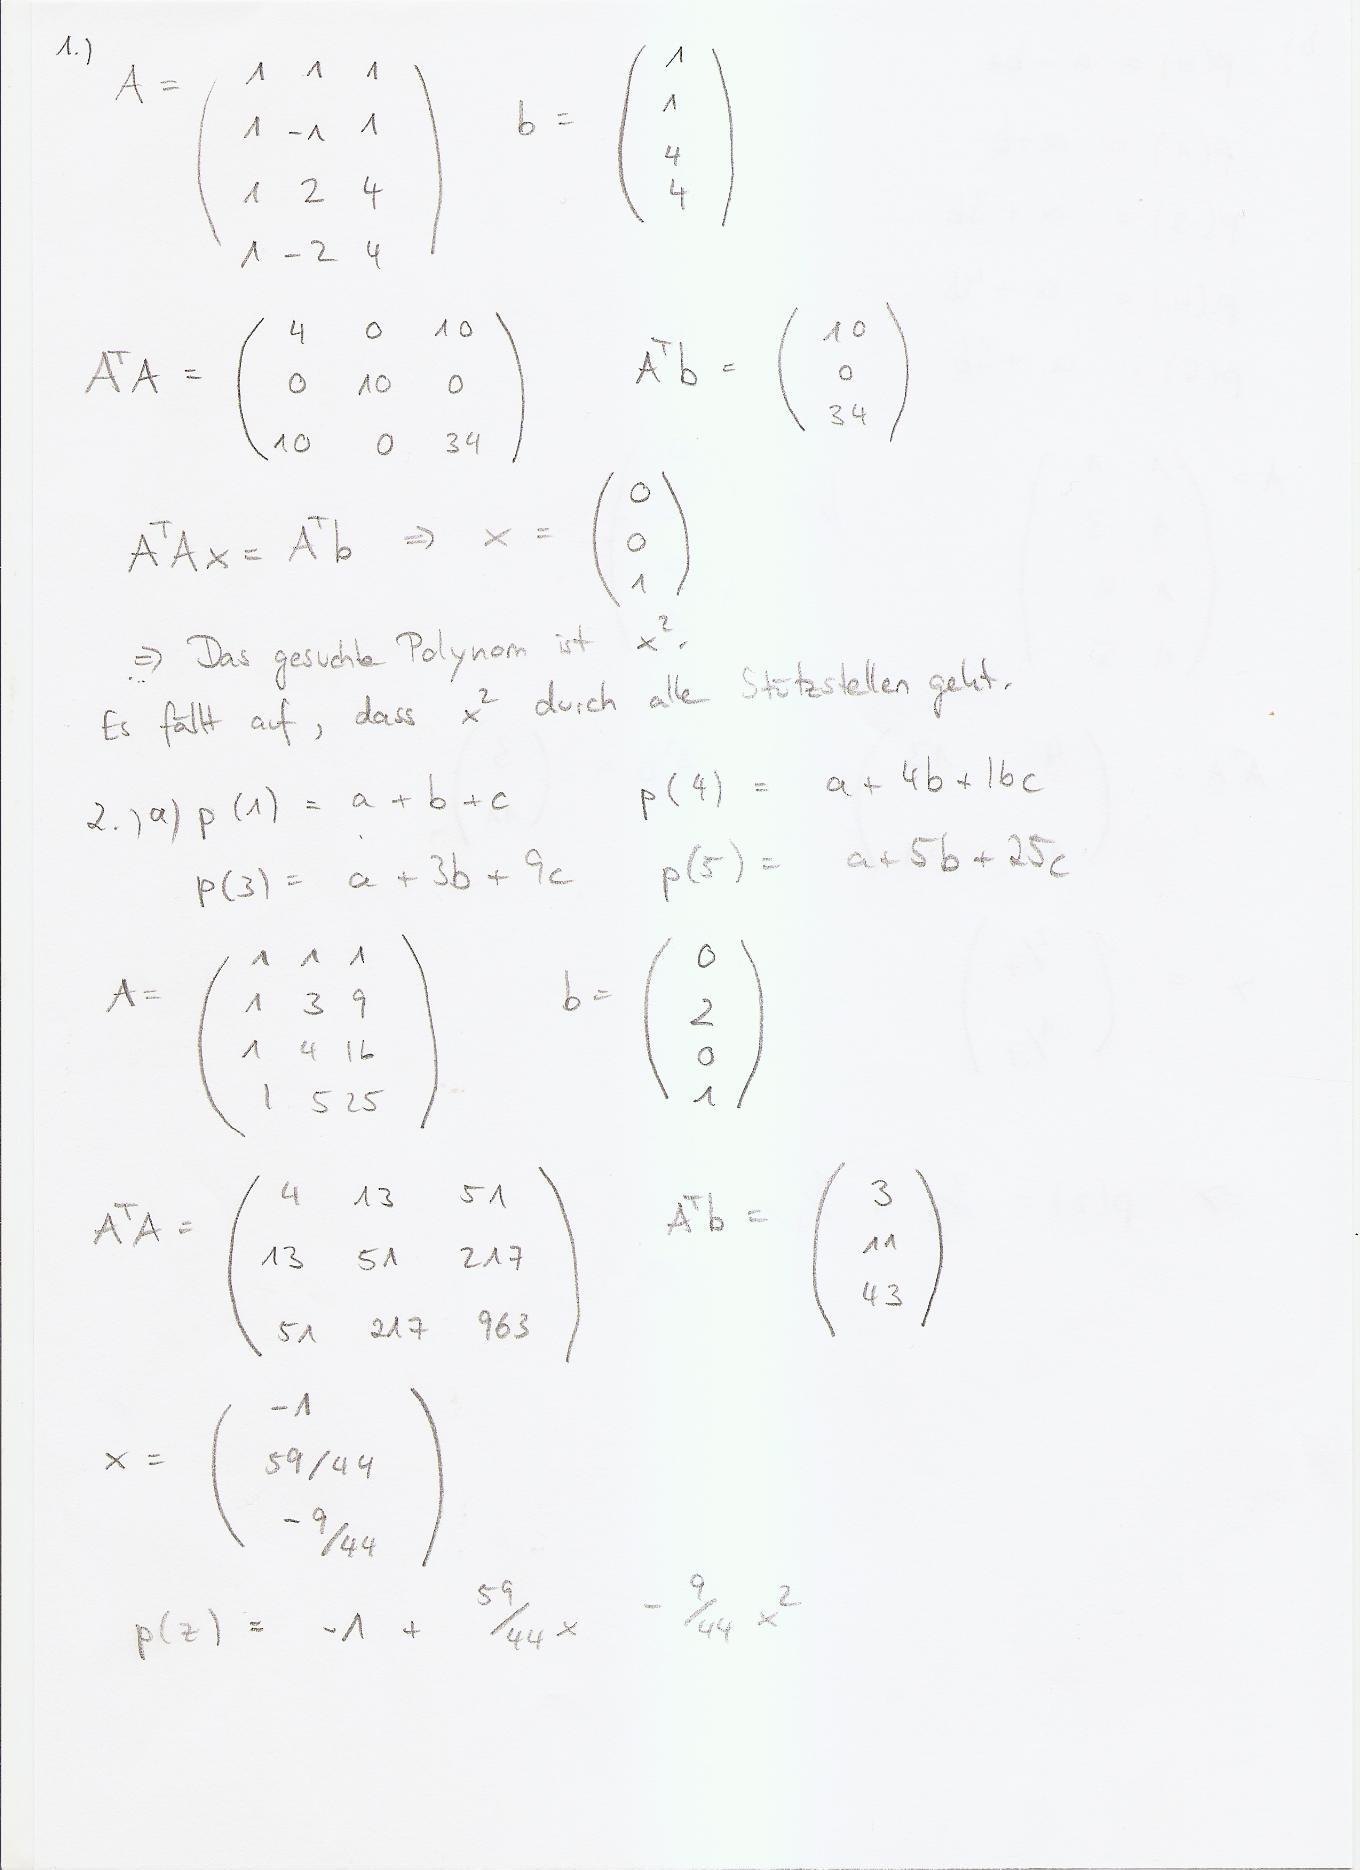 1.)
A = ( 1 1 1     b = ( 1
1 -1 1     1
1 2 4     4
1 -2 4 )     4 )
AᵀA = ( 4 0 10     Aᵀb = ( 10
0 10 0     0
10 0 34 )     34 )
AᵀAx = Aᵀb ⇒ x = ( 0
0
1 )
⇒ Das gesuchte Polynom ist x².
Es fällt auf, dass x² durch alle Stützstellen geht.
2.) a) p(1) = a + b + c     p(4) = a + 4b + 16c
p(3) = a + 3b + 9c     p(5) = a + 5b + 25c
A = ( 1 1 1     b = ( 0
1 3 9     2
1 4 16     0
1 5 25 )     1 )
AᵀA = ( 4 13 51     Aᵀb = ( 3
13 51 217     11
51 217 963 )     43 )
x = ( -1
59/44
-9/44 )
p(z) = -1 + 59/44 x - 9/44 x²